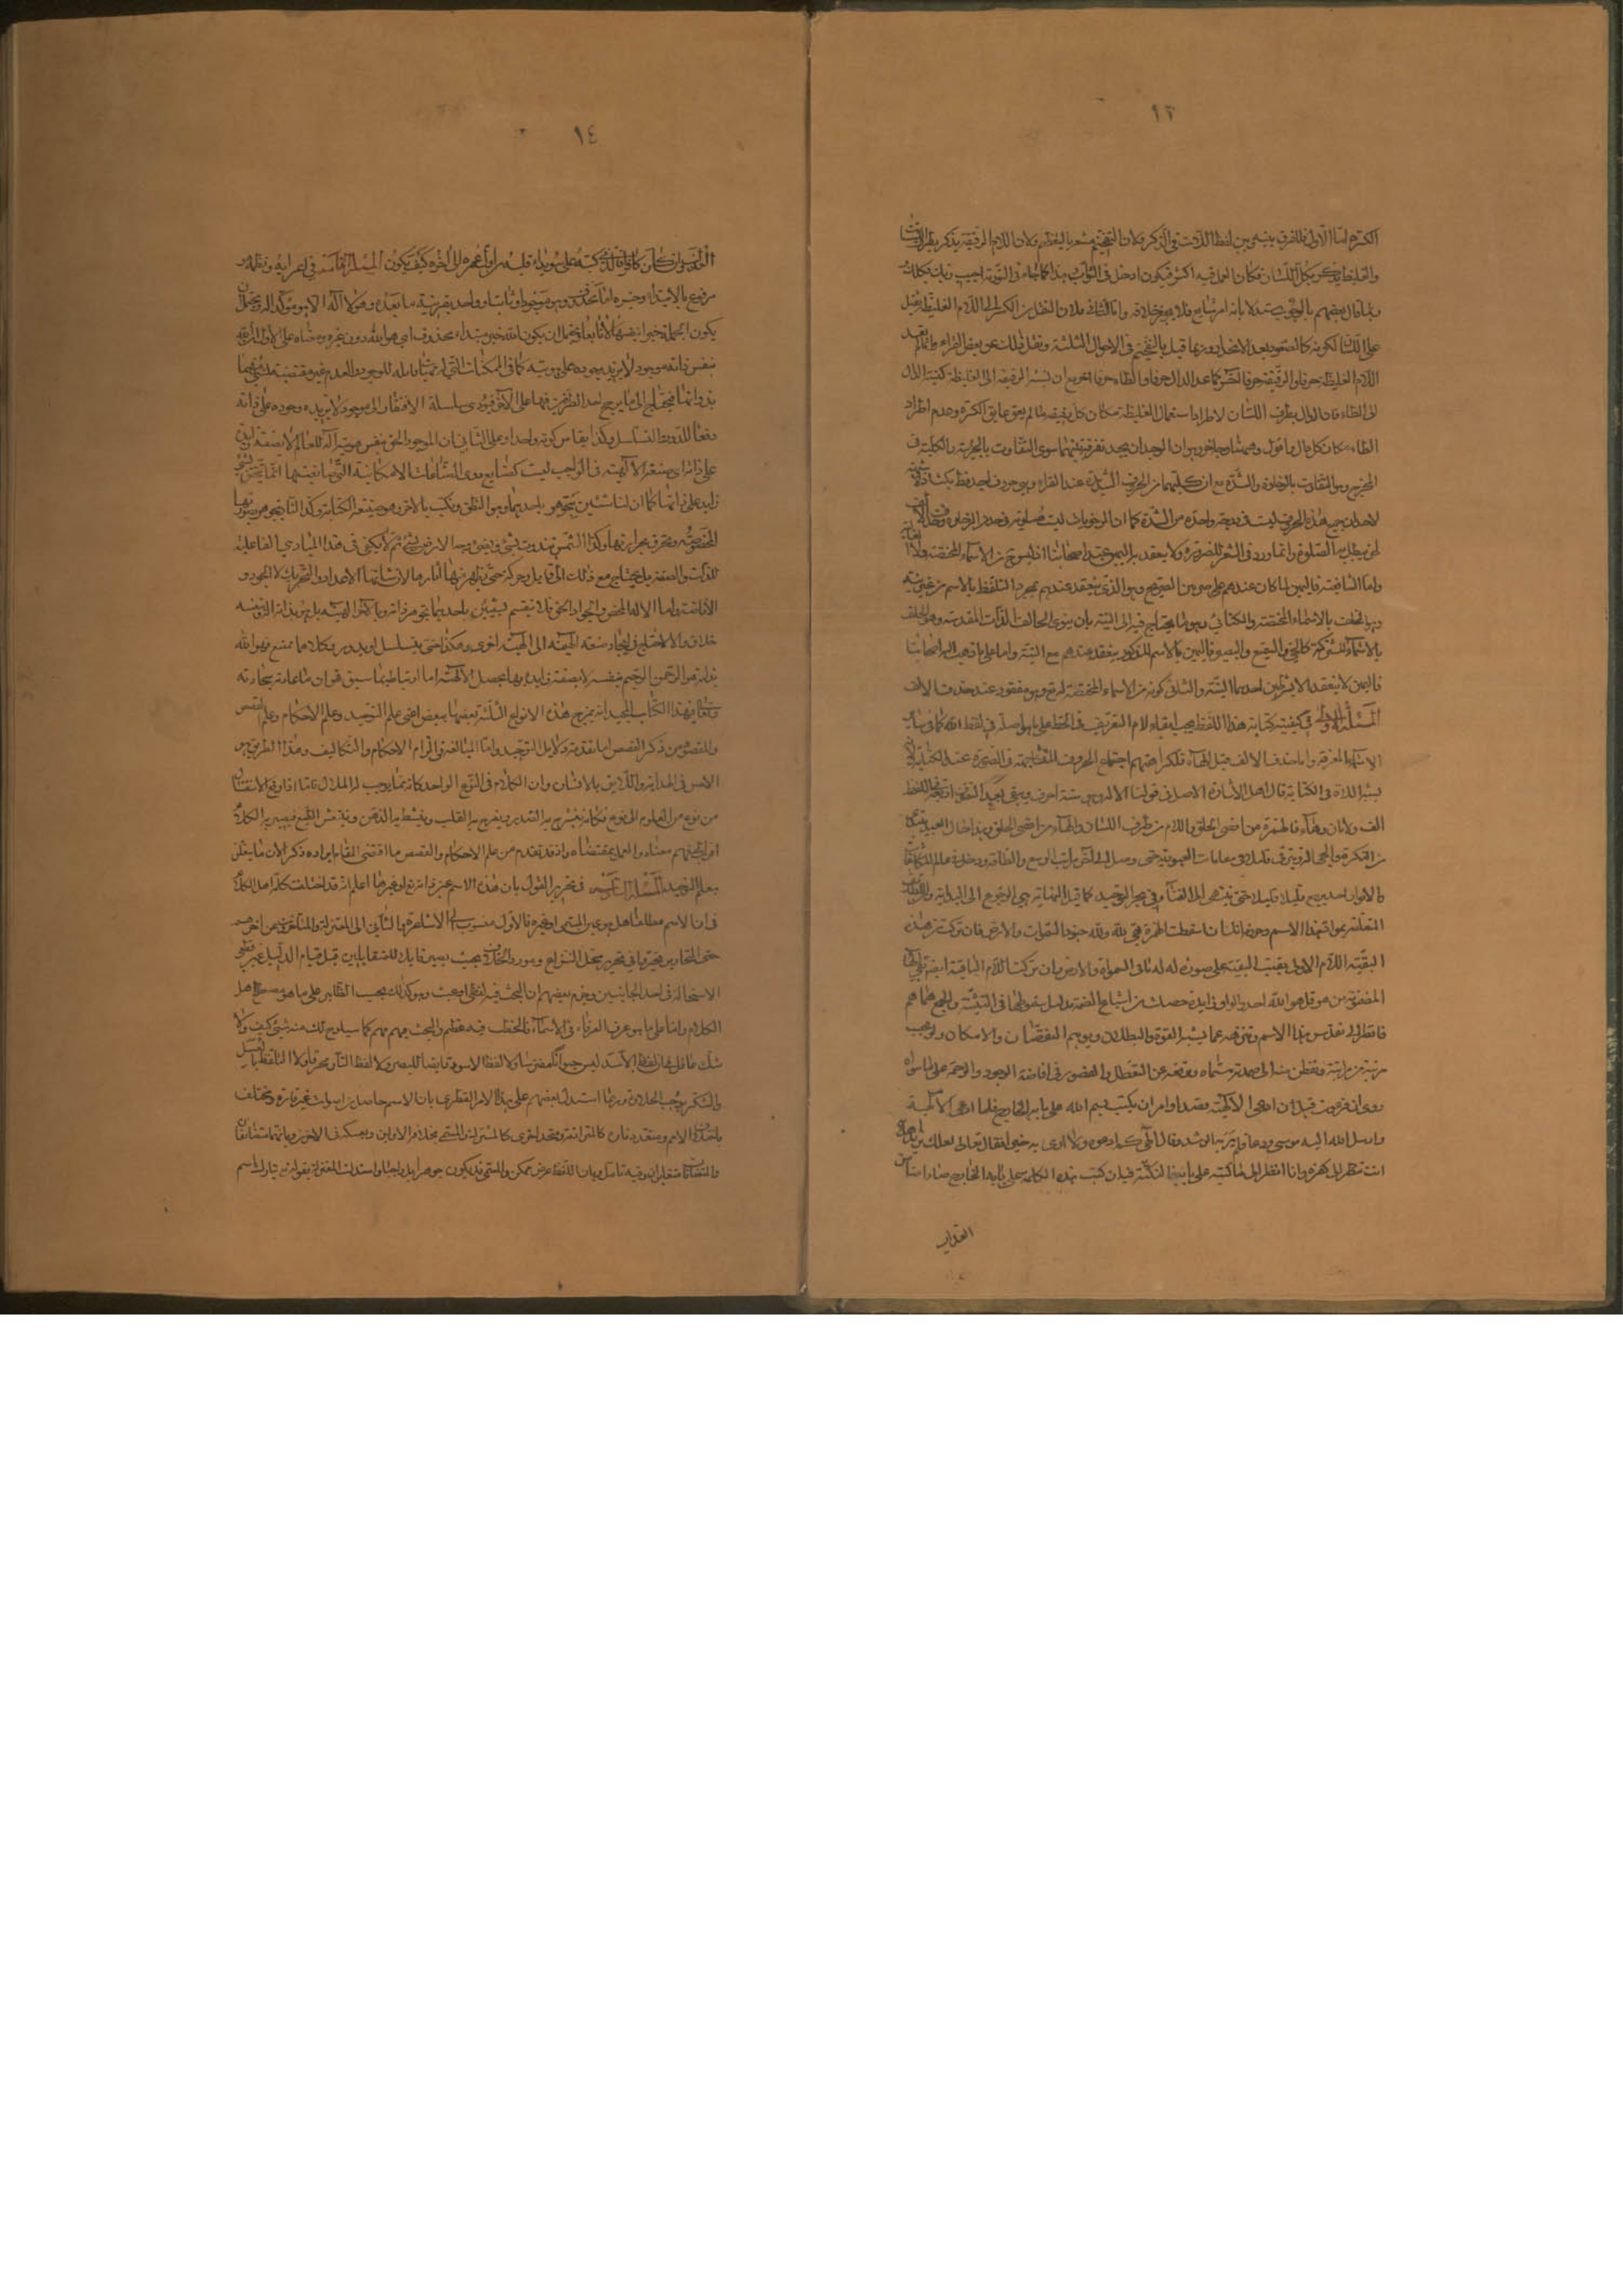 ١٣
الكسرة اما الاول فللفرق بينه وبين لفظ اللات في الذكر ولان التفخيم مشعر بالتعظيم ولان اللام الرقيقة يذكر بطرف اللسان
والغليظة يذكر بكل اللسان فكان العمل فيه اكثر فيكون ادخل في الثواب وهذا كما جاء في التورية اجب ربك بكلك
وبما قال بعضهم بالوجوب مستدلا بانه امر شايع فلا يجوز خلافه واما الثاني فلان النقل من الكسر الى اللام الغليظة ثقيل
على اللسان لكونه كالصعود بعد الانحدار وربما قيل بالتفخيم في الاحوال الثلثة ونقل ذلك عن بعض القراء وانما لم يعد
اللام الغليظة حرفا والرقيقة حرفا اخر كما عد الدال حرفا والطاء حرفا اخر مع ان نسبة الرقيقة الى الغليظة كنسبة الدال
الى الطاء فان الدال بطرف اللسان لاطراد استعمال الغليظة مكان كل رقيقة ما لم يعق عايق الكسرة وعدم اطراد
الطاء مكان كل دال واقول وهيهنا وجه اخر وهو ان الوجدان يجد تفرقة بينهما سوى التفاوت بالجزئية والكلية في
المخرج وهو التفاوت بالرخاوة والشدة مع ان كليهما من الحروف الشديدة عند القراء
لاحد ان جميع هذه الحروف ليست في درجة واحدة من الشدة كما ان الرخويات ليست متساوية في حدود الرخاوة وحذف الف
لحن يبطل به الصلوة وانما ورد في الشعر للضرورة ولا ينعقد به اليمين عند اصحابنا اذ ليس هو من الاسماء المختصة
واما الشافعية فاليمين لما كان عندهم على قسمين الصريح وهو الذي ينعقد عندهم بمجرد التلفظ بالاسم من غير نية
وهو الحلف بالاسماء المختصة والكنائي وهو ما يحتاج فيه الى النية بان ينوي الحالف الذات المقدسة وهو الحلف
بالاسماء المشتركة كالحي والسميع والبصير فاليمين بالاسم المذكور ينعقد عندهم مع النية واما على ما ذهب اليه اصحابنا
فاليمين لا ينعقد الا بشرطين احدهما النية والثاني كونه من الاسماء المختصة له تع وهو مفقود عند حذف الالف
المسئلة الاولى في كيفية كتابة هذا اللفظ يجب ابقاء لام التعريف في الخط على ما هو اصله في لفظ الله كما في سائر
الاسماء المعرفة واما حذف الالف قبل الهاء فلكراهتهم اجتماع الحروف المتشابهة في الصورة عند الكتابة
يشبه اللاة في الكتابة قال اهل الاشارة الاصل في قولنا الاله وهو ستة احرف ويبقى بعد التصرف اربعة في اللفظ
الف ولامان وهاء فالهمزة من اقصى الحلق واللام من طرف اللسان والهاء من اقصى الحلق وهذا حال العبد يبتدئ
من النكرة قليلا في مقامات العبودية حتى وصل الى اخر مراتب الوسع والطاقة ودخل في عالم المكاشفات
والانوار اخذ يرجع قليلا قليلا حتى ينتهي الى الفناء في بحر التوحيد كما قيل النهاية هي الرجوع الى البداية
المتعلقة بمواد هذا الاسم وحروفه انك ان اسقطت الهمزة بقي لله ولله جنود السموات والارض فان تركت من هذه
البقية اللام الاولى بقيت البقية على صورة له له ما في السموات والارض وان تركت اللام الباقية ايضا بقي الهاء
المضمومة من هو قل هو الله احد والواو زايدة حصلت من اشباع الضمة بدليل سقوطها في التثنية والجمع هما هم
فانظر الى تقدس هذا الاسم وتنزهه عما يشبه القوة والبطلان ويوهم النقصان والامكان
وتفطن منه الى صمدية مسماه وتقدسه عن التعطل والقصور في افاضة الوجود والرحمة على ما سواه
روى ان فرعون قبل ان ادعى الالهية قصد او امر ان يكتب بسم الله على بابه الخارج فلما ادعى الالهية
وارسل الله اليه موسى ودعاه فلم ير به الرشد قال الهي كم ادعوه ولا ارى به خيرا فقال تعالى لعلك تريد اهلاكه
انت تنظر الى كفره وانا انظر الى ما كتبه على بابه فالنكتة فيه ان كتب هذه الكلمة على بابه الخارج صار امنا من
العذاب
١٤
كافرا فالذي كتبه على سويداء قلبه من اول عمره الى اخره كيف يكون المسئلة الخامسة في اعرابه ونظمه
مرفوع بالابتداء وخبره اما محذوف وهو موجود او ثابت او واحد بقرينة ما بعده وهو لا اله الا هو مؤكد له ويحتمل ان
يكون الجملة خبرا بنفسها لا تابعا ويحتمل ان يكون الله خبر مبتداء محذوف اي هو الله دون غيره ومعناه على الاول ان الله
بنفس ذاته موجود لا يزيد وجوده على هويته كما في الممكنات التي ماهياتها قابلة للوجود والعدم غير مقتضية لشئ منهما
بذواتها فيحتاج الى ما يرجح احد الطرفين فيها على الاخر فيؤدي سلسلة الافتقار الى موجود لا يزيد وجوده على ذاته
دفعا للدور والتسلسل وكذا يقاس كونه واحدا وعلى الثاني ان الموجود الحق بنفس هويته اله للعالم لا بصفة زايدة
على ذاته اي صفة الالهية في الواجب ليست كصنايع ذوي النشآت الامكانية التي صانعيتها انما تتحقق بشئ
زايد على ذاتها كما ان لنا شيئين نتجوهر باحديهما وهو النطق ونكتب بالاخر وهو صنعة الكتابة وكذا النار يتجوهر بصورتها
المخصوصة وتحرق بحرارتها وكذا الشمس تتذوت بشئ وتضئ وجه الارض بشئ ثم لا يكفي في هذا المبادي الفاعلية
للذات والصفة بل يحتاج مع ذلك الى قابل وحركة حتى يظهر منها اثارها لان شانها الاعداد والتحريك لا الجود و
الافاضة واما الاله المحض والجواد الحق فلا ينقسم فيه شيئين باحدهما يتجوهر ذاته وبالاخر الهيته بل هو بذاته الوهيته
خلاق والا لاحتاج في ايجاد صفة الهيته الى الهية اخرى وهكذا حتى يتسلسل او يدور وكلاهما ممتنع فهو الله
بذاته هو الرحمن الرحيم بنفسه لا بصفة زايدة بها يحصل الالهية اما ارتباطها بما سبق فهو ان من عادته سبحانه
وتعالى في هذا الكتاب المجيد انه يمزج هذه الانواع الثلثة بعضها ببعض اعني علم التوحيد وعلم الاحكام وعلم القصص
والمقصود من ذكر القصص اما تقدمة دلايل التوحيد واما المبالغة في الزام الاحكام والتكاليف وهذا الطريق هو
الاحسن في الهداية واللايق بالانسان وان الكلام في النوع الواحد كانه مما يوجب له الملال فاما اذا وقع الانتقال
من نوع من العلوم الى نوع فكانه ينشرح به الصدر ويفرح به القلب وينشط به الذهن
معناه والعمل بمقتضاه واذ قد تقدم من علم الاحكام والقصص ما اقتضى المقام ايراده ذكر الان ما يتعلق
بعلم التوحيد المسئلة السادسة في تحرير القول بان هذا الاسم عين ذاته تع او غيرها اعلم انه قد اختلفت كلمة اهل الكلام
في ان الاسم مطلقا هل هو عين المسمى او غيره فالاول منسوب الى الاشاعرة والثاني الى المعتزلة والمتاخرون من اخرهم
حتى النحارير تحيروا في تحرير محل النزاع ومورد الخلاف بحيث يصير قابلا للمتقابلين قبل قيام الدليل
الاستحالة في احد الجانبين وجزم بعضهم ان البحث فيه لفظي او عبث وهو كذلك بحسب الظاهر على ما هو مصطلح اهل
الكلام واما على ما هو عرف العرفاء في الاسماء فالخطب فيه عظيم والبحث مهم كما سيلوح لك منه شئ كيف ولا
شك عاقل في ان لفظ الاسد ليس حيوانا مفترسا ولا لفظ الاسود قابضا للبصر ولا لفظ النار محرقا ولا التلفظ بالعسل
والسكر يوجب الحلاوة وربما استدل بعضهم على هذا الامر الفطري بان الاسم حاصل من اصوات غير قارة ويختلف
الامم ويتعدد تارة كالمترادفة ويتحد اخرى كالمشترك والمسمى بخلافه في الاولين وبعكسه في الاخرين وبانهما متضايفان
والمتضايفان متغايران وفيه تامل وبان اللفظ عرض ممكن والمسمى قد يكون جوهرا بل واجبا واستدلت المعتزلة بقوله تع تبارك اسم